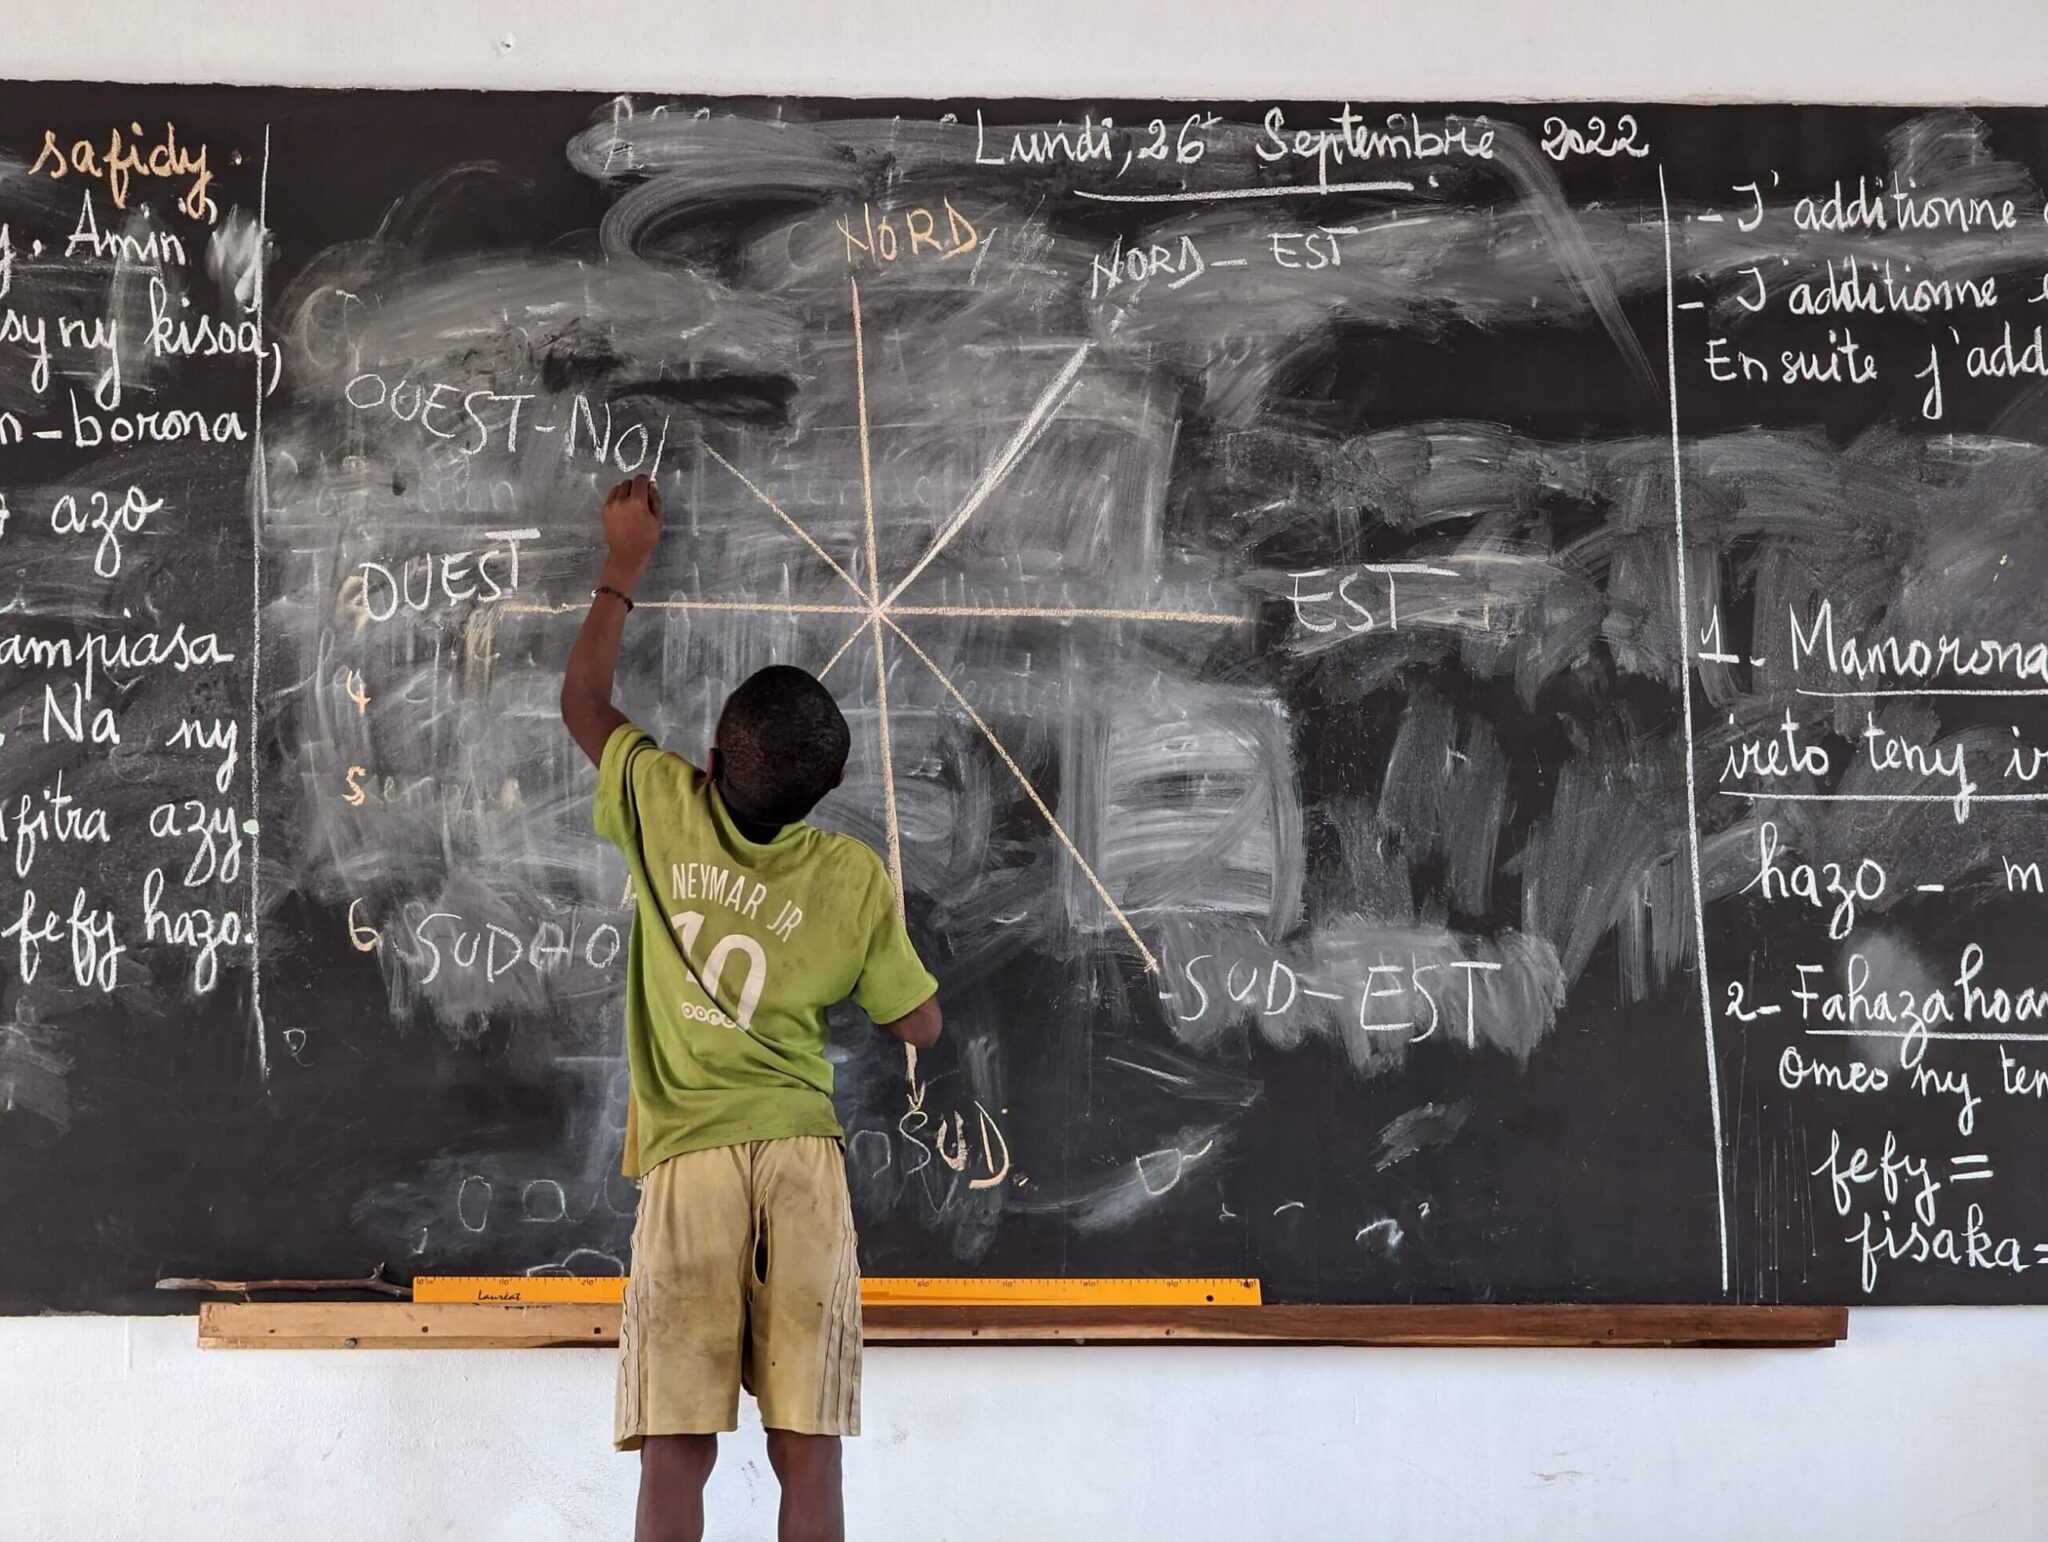 safidy.
Amin'
ny kisoa,
n-borona
azo
ampiasa
. Na ny
fitra azy.
fefy hazo.
Lundi, 26 Septembre 2022
NORD
NORD - EST
OUEST-NO
OUEST
EST
4
5
6
SUD-O
SUD-EST
SUD.
NEYMAR JR
10
ooredoo
Lauréat
- J'additionne
- J'additionne
Ensuite j'add
1- Mamorona
ireto teny ir
hazo - m
2- Fahazahoan
omeo ny ten
fefy =
fisaka =